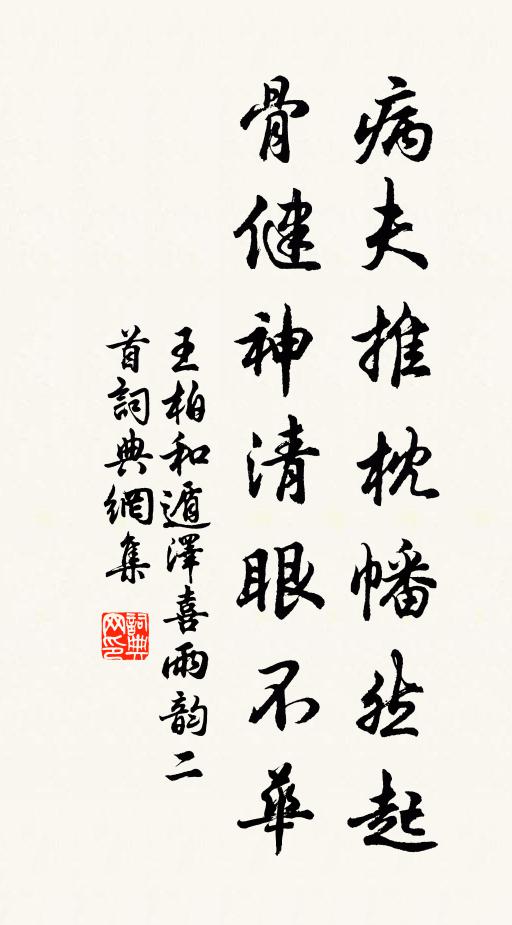 病夫推枕幡然起
骨健神清眼不華
王柏和遁澤喜雨韵二
首詞典網集
詞典网印